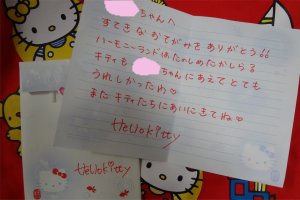 ちゃんへ
すてきなおてがみをありがとう!!
ハーモニーランドはたのしめたかしら
キティも ちゃんにあえてとても
うれしかったわ♡
またキティたちにあいにきてね♡
Hellokitty
Hellokitty